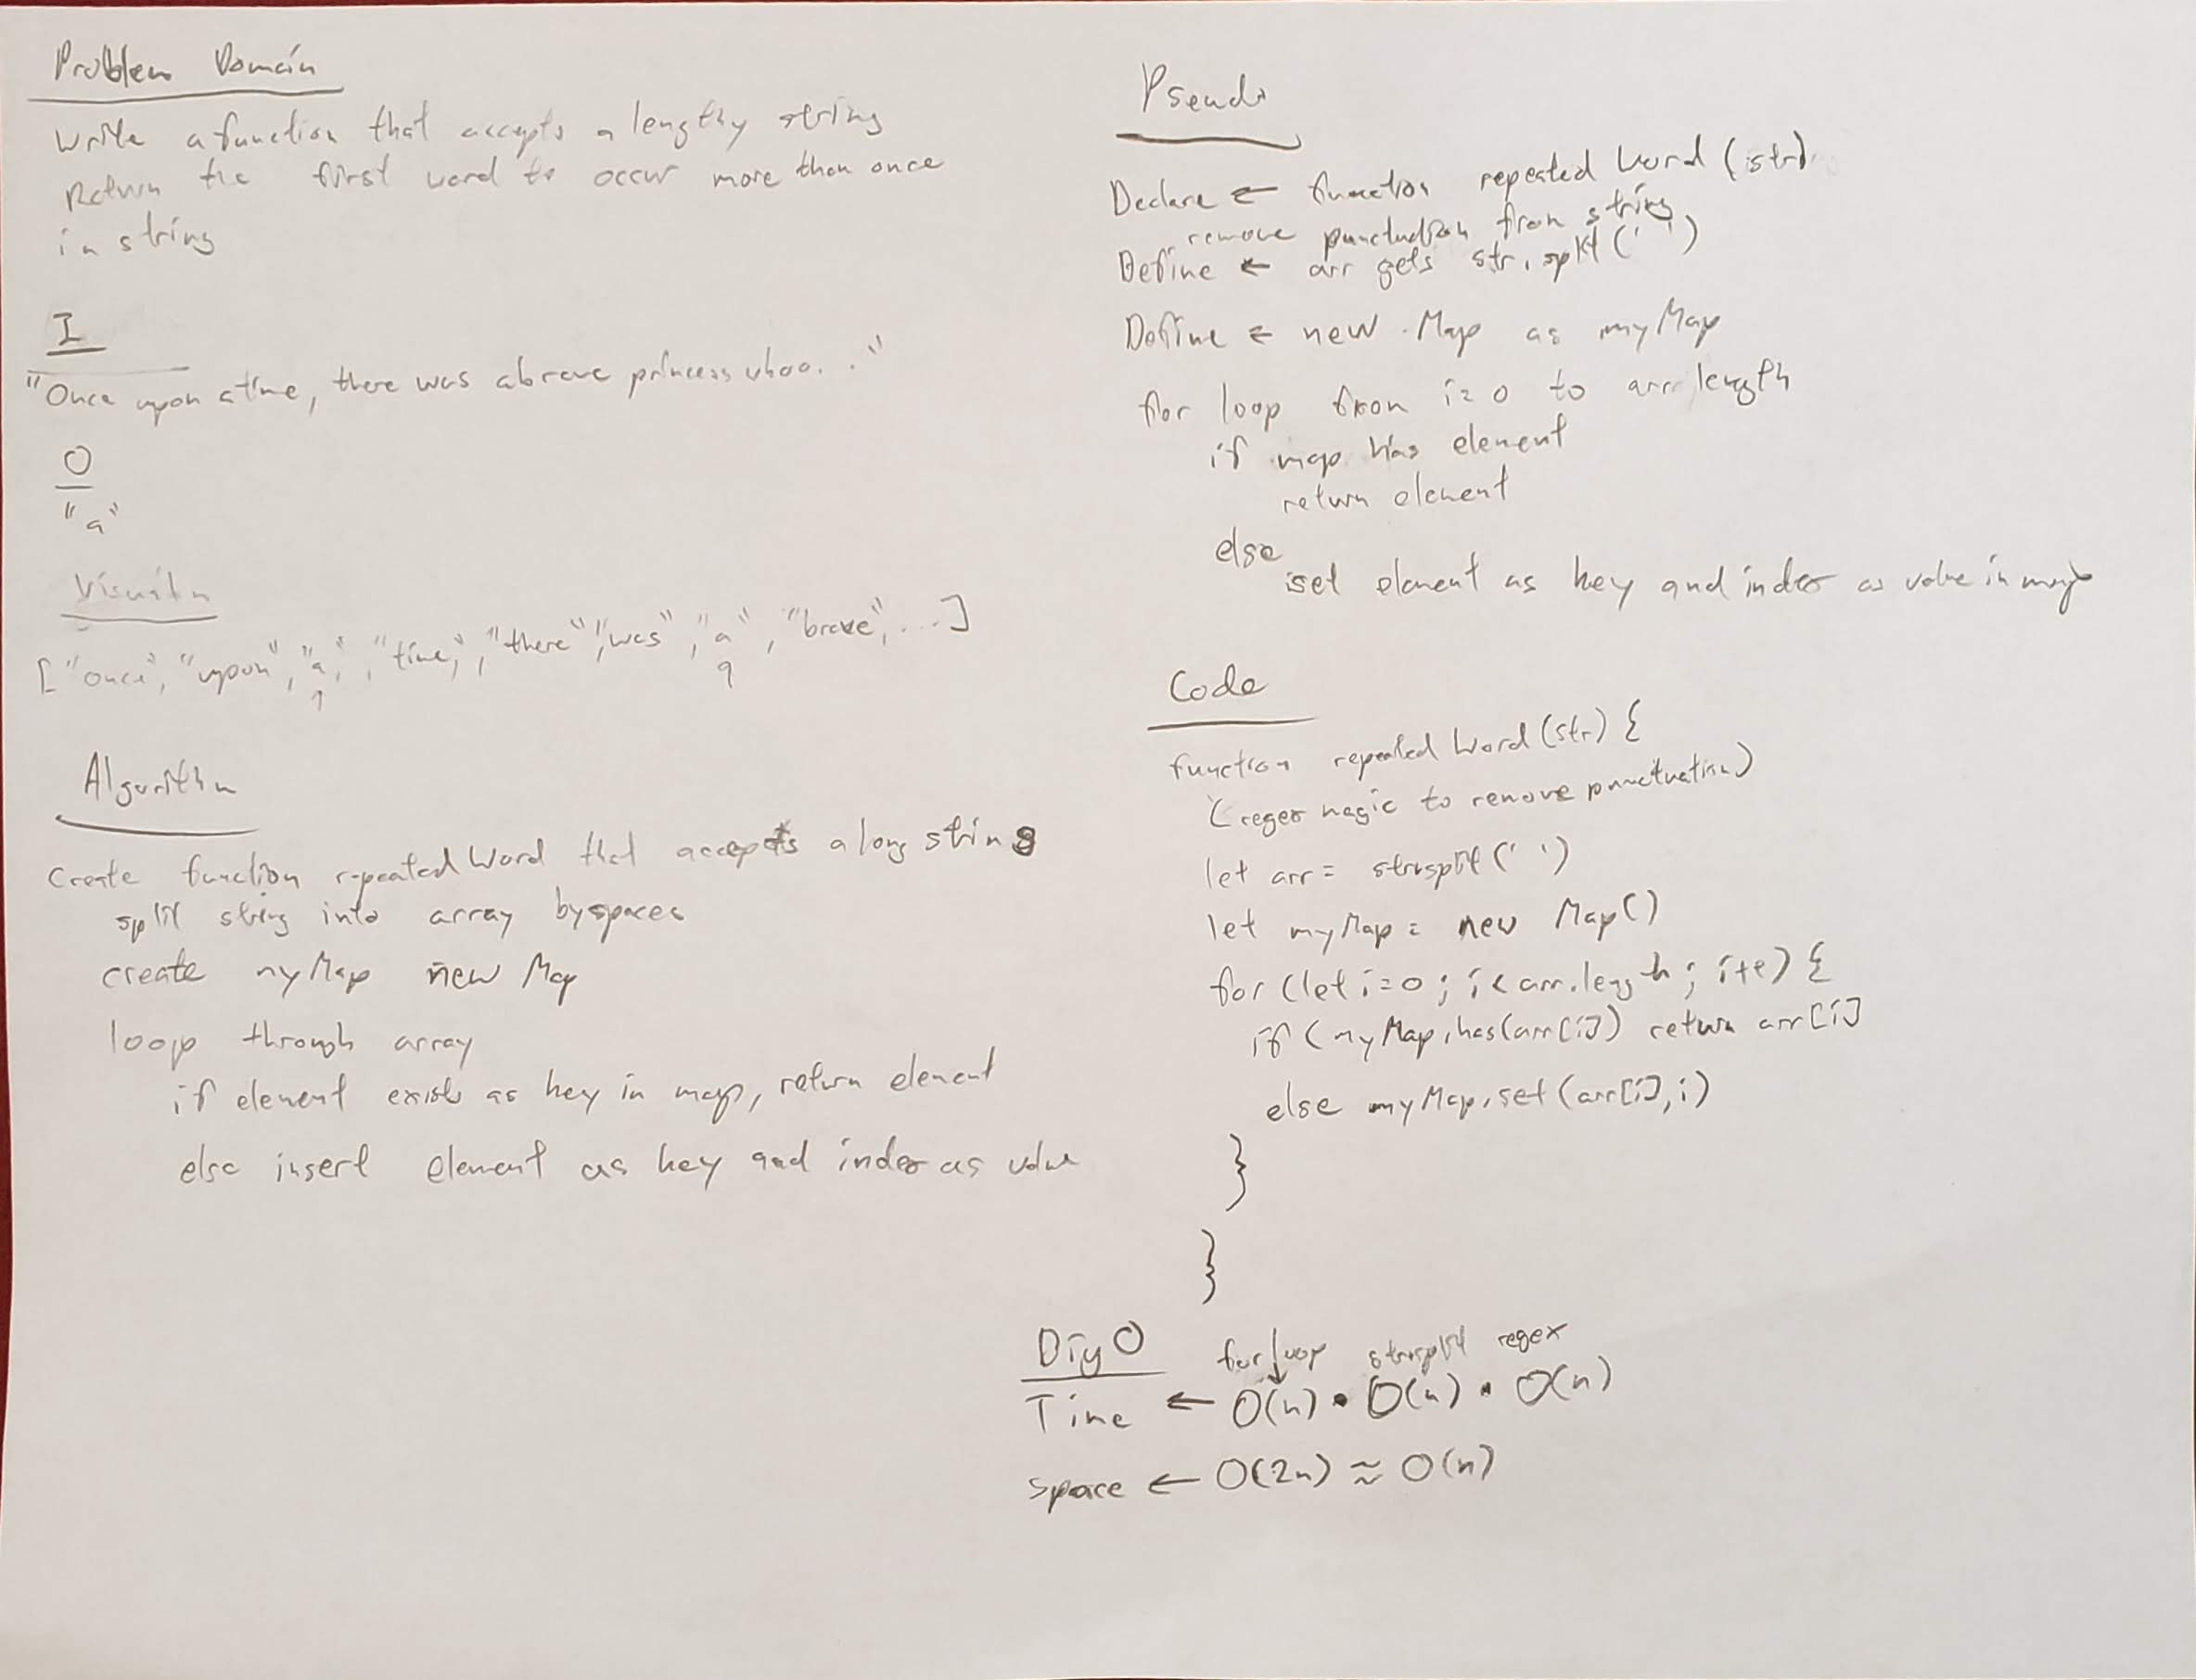 Problem Domain
Write a function that accepts a lengthy string
Return the first word to occur more than once
in string
I
"Once upon a time, there was a brave princess whoo..."
O
"a"
Visual
["once", "upon", "a", "time,", "there", "was", "a", "brave", ...]
Algorithm
Create function repeatedWord that accepts a long string
split string into array by spaces
create myMap new Map
loop through array
if element exists as key in map, return element
else insert element as key and index as value
Pseudo
Declare ← function repeatedWord (str)
remove punctuation from string
Define ← arr gets str.split(' ')
Define ← new Map as myMap
for loop from i=0 to arr length
if map has element
return element
else
set element as key and index as value in map
Code
function repeatedWord(str) {
(regex magic to remove punctuation)
let arr = str.split(' ')
let myMap = new Map()
for (let i=0; i < arr.length; i++) {
if (myMap.has(arr[i]) return arr[i]
else myMap.set(arr[i], i)
}
}
Big O
for loop str.split regex
Time ← O(n) • O(n) • O(n)
space ← O(2n) ≈ O(n)